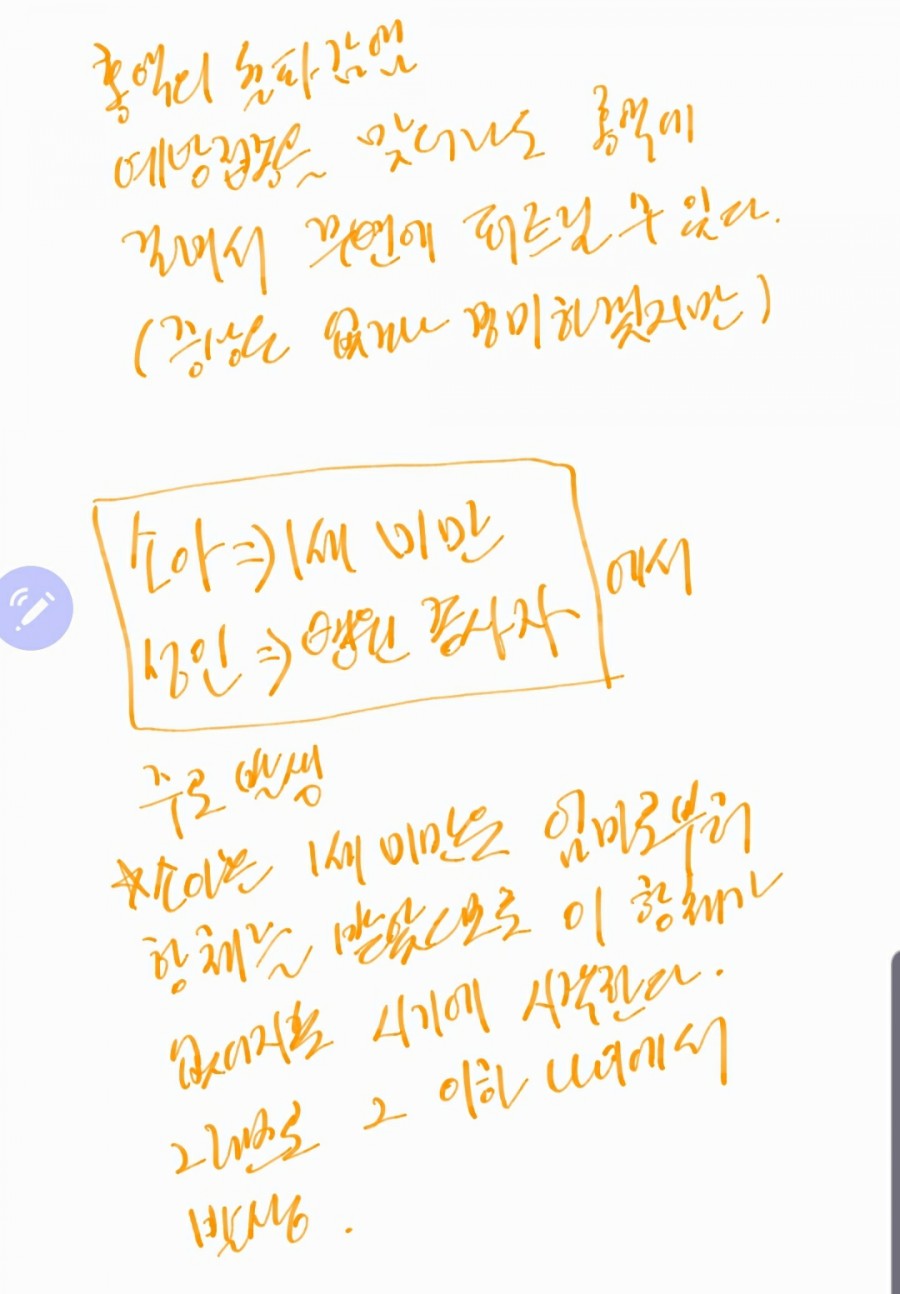 홍역의 돌파감염
예방접종을 맞더라도 홍역에
걸려서 주변에 퍼트릴 수 있다.
(증상은 없거나 경미하겠지만)
소아 => 1세 미만
성인 => 병원 종사자 에서
주로 발생
*소아는 1세 미만은 엄마로부터
항체를 받았으므로 이 항체가
없어지는 시기에 시작한다.
그러므로 그 이하 나이에서
발생.